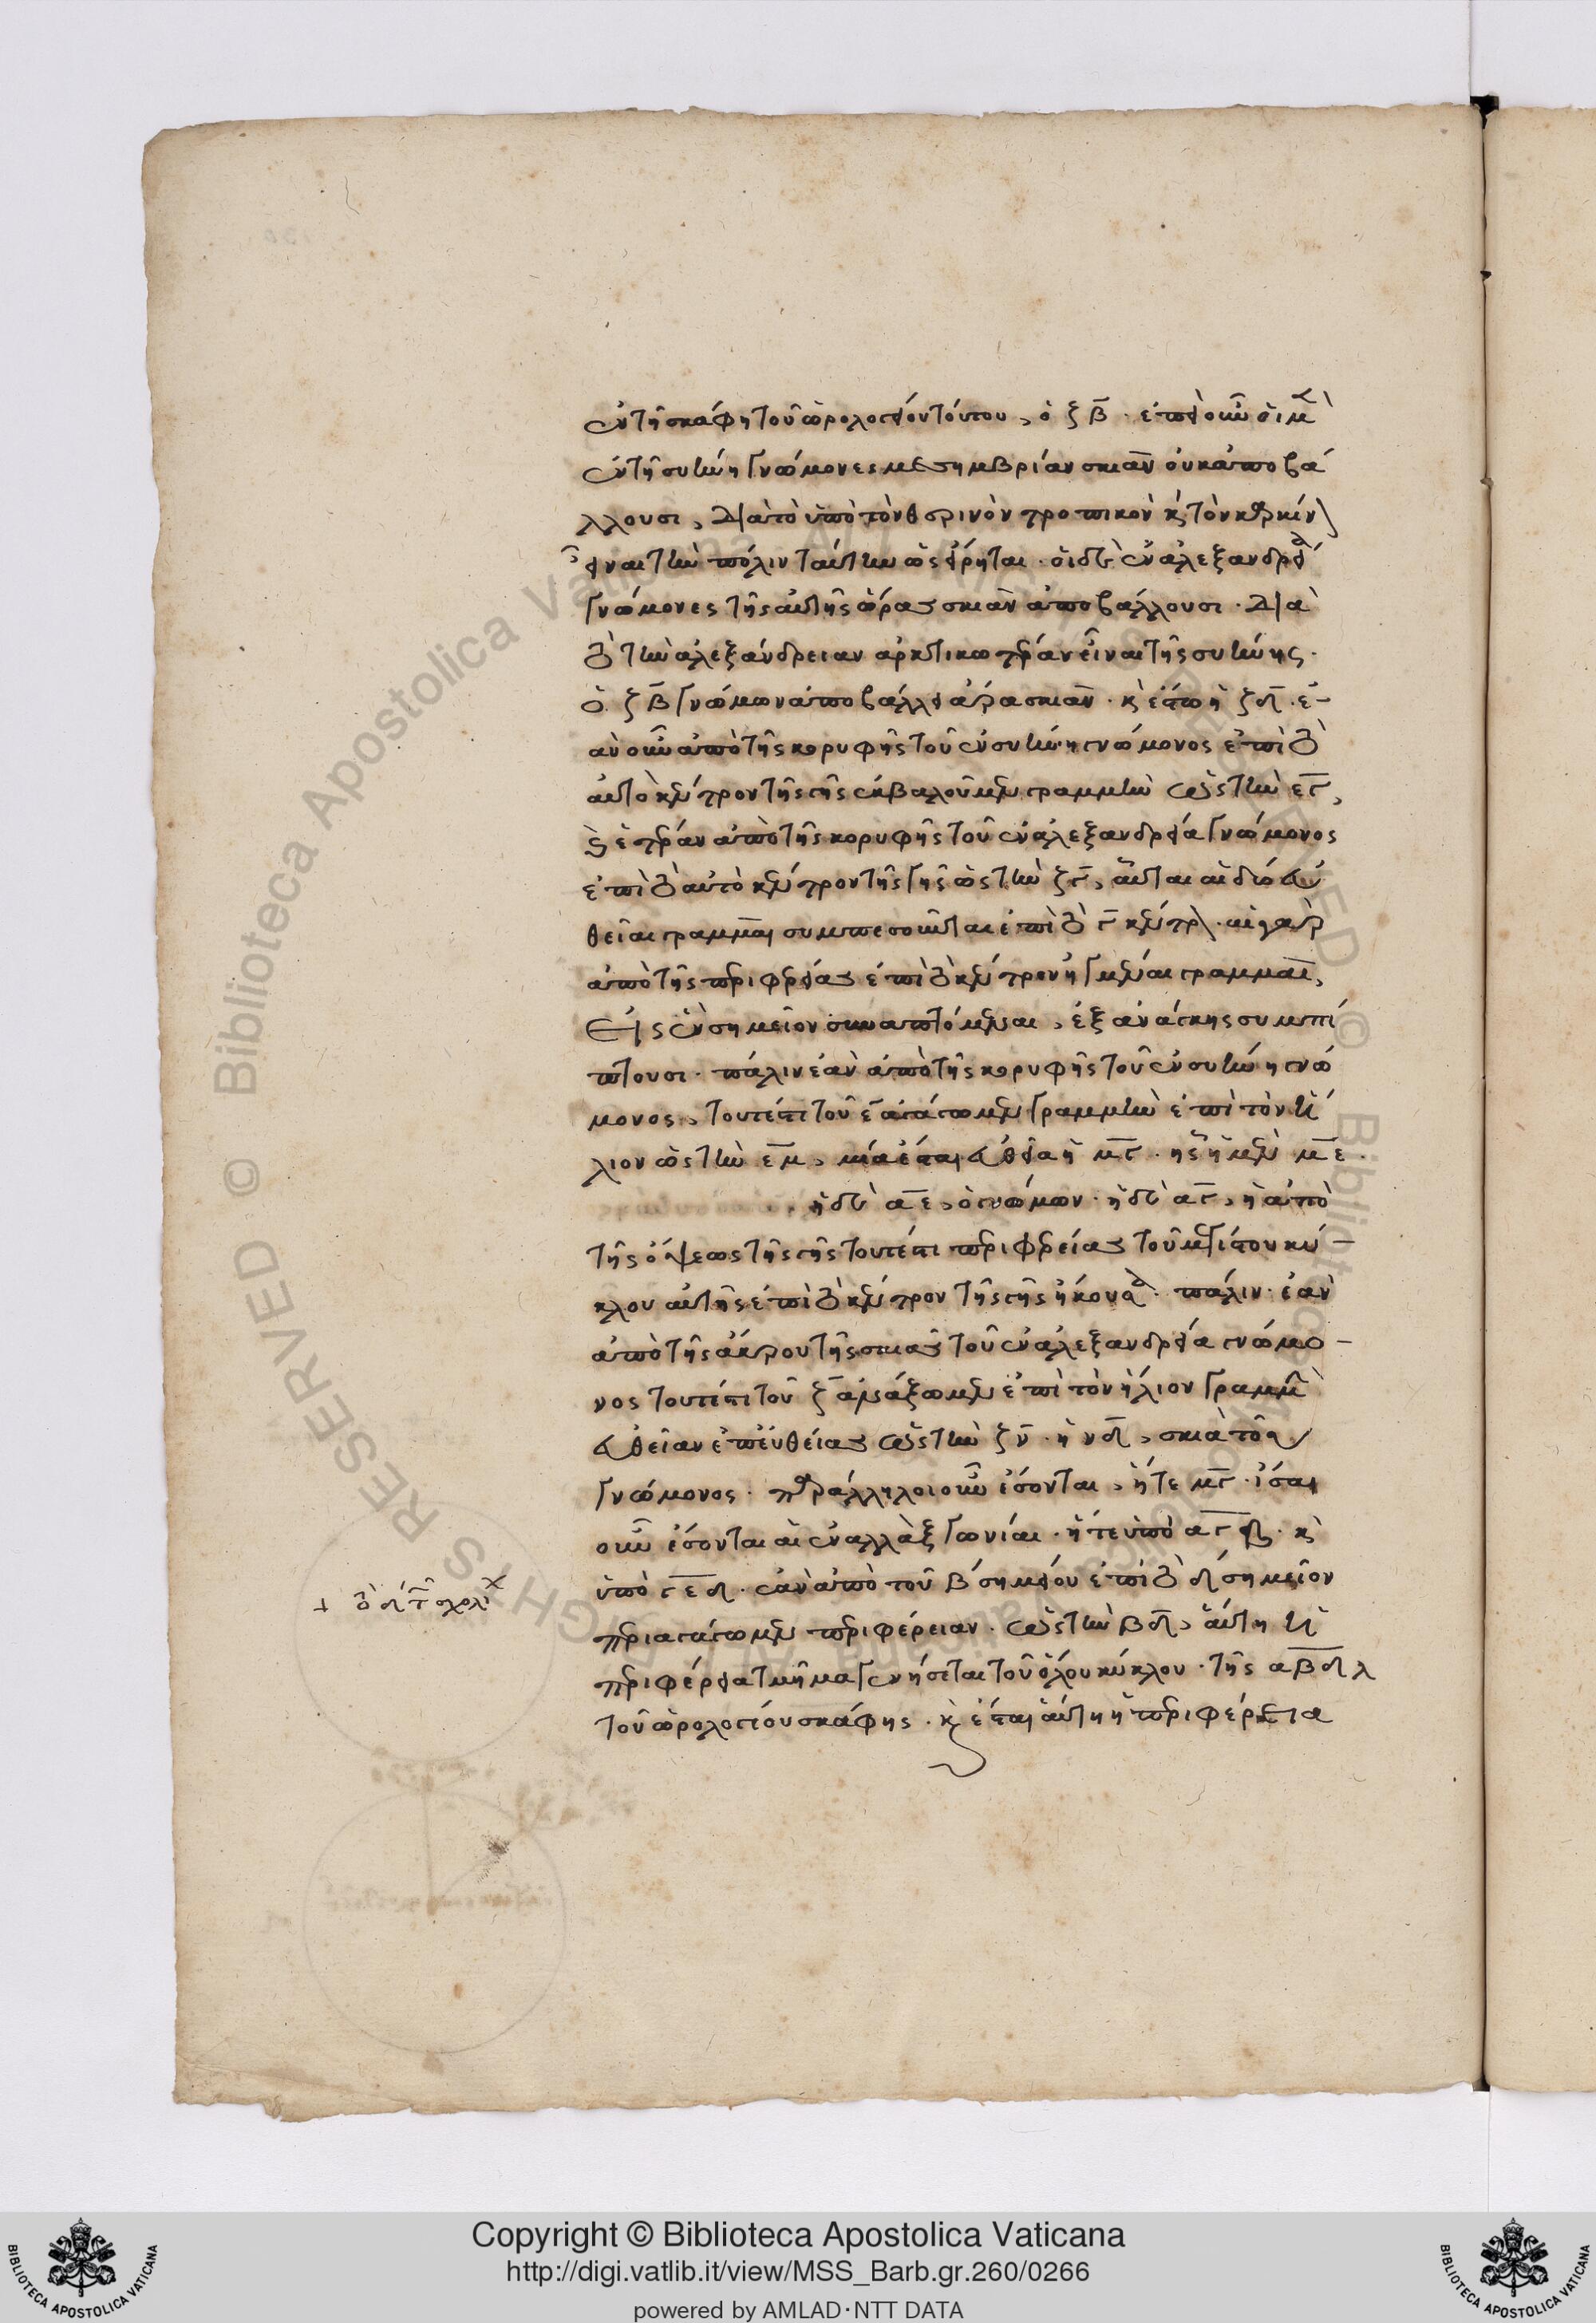 ἐν τῇ σκάφῃ τοῦ ὡρολογείου τούτου, ὁ ζβ. ἐπεὶ οὖν οἱ μὲν
ἐν τῇ συήνῃ γνώμονες μεσημβρίαν σκιὰν οὐκ ἀποβά
λλουσι, διὰ τὸ ὑπὸ τὸν θερινὸν τροπικὸν κ τὸν καρκίν
εἶναι τὴν πόλιν ταύτην ὡς εἴρηται. οἱ δὲ ἐν ἀλεξανδρείᾳ
γνώμονες τῆς αὐτῆς ὥρας σκιὰν ἀποβάλλουσι. διὰ
τὸ τὴν ἀλεξάνδρειαν ἀρκτικωτέραν εἶναι τῆς συήνης.
ὁ ζβ γνώμων ἀποβάλλει ἄρα σκιάν. κ ἔστω ἡ ζδ. ἐ-
ὰν οὖν ἀπὸ τῆς κορυφῆς τοῦ ἐν συήνῃ γνώμονος ἐπὶ τὸ
αὐτὸ κέντρον τῆς γῆς ἐκβαλοῦμεν γραμμὴν ὡς τὴν εγ,
κ ἑτέραν ἀπὸ τῆς κορυφῆς τοῦ ἐν ἀλεξανδρείᾳ γνώμονος
ἐπὶ τὸ αὐτὸ κέντρον τῆς γῆς ὡς τὴν ζγ, αὗται αἱ δύο εὐ
θεῖαι γραμμαὶ συμπεσοῦνται ἐπὶ τὸ γ κέντρ. αἱ γὰρ
ἀπὸ τῆς περιφερείας ἐπὶ τὸ κέντρον ἠγμέναι γραμμαὶ,
εἰς ἓν σημεῖον συναπτόμεναι, ἐξ ἀνάγκης συμπί
πτουσι. πάλιν ἐὰν ἀπὸ τῆς κορυφῆς τοῦ ἐν συήνῃ γνώ
μονος, τουτέστι τοῦ ε ἀγάγωμεν γραμμὴν ἐπὶ τὸν ἥ
λιον ὡς τὴν εμ, μία ἔσται εὐθεῖα ἡ μγ. ἧς ἡ μὲν με.
ἡ δὲ αε, ὁ γνώμων. ἡ δὲ αγ, ἡ ἀπὸ
τῆς ὄψεως τῆς γῆς τουτέστι περιφερείας τοῦ μεγίστου κύ-
κλου αὐτῆς ἐπὶ τὸ κέντρον τῆς γῆς ἥκουσα. πάλιν. ἐὰν
ἀπὸ τῆς ἄκρου τῆς σκιᾶς τοῦ ἐν ἀλεξανδρείᾳ γνώμο-
νος τουτέστι τοῦ ζ ἀμάξωμεν ἐπὶ τὸν ἥλιον γραμμὴ
εὐθεῖαν ἐπευθείας ὡς τὴν ζν. ἡ νδ, σκιὰ τοῦ
γνώμονος. παράλληλοι οὖν ἔσονται, ἥτε μγ. ἴσαι
οὖν ἔσονται αἱ ἐναλλὰξ γωνίαι. ἥ τε ὑπὸ αγ. κ
ὑπὸ γεδ. ἐὰν ἀπὸ τοῦ β σημείου ἐπὶ τὸ δ σημεῖον
περιαγάγωμεν περιφέρειαν. ὡς τὴν βδ, αὕτη ἡ
περιφέρεια τμῆμα γενήσεται τοῦ ὅλου κύκλου. τῆς αβδλ
τοῦ ὡρολογίου σκάφης. κ ἔσται αὕτη ἡ περιφέρεια
Copyright © Biblioteca Apostolica Vaticana
http://digi.vatlib.it/view/MSS_Barb.gr.260/0266
powered by AMLAD·NTT DATA